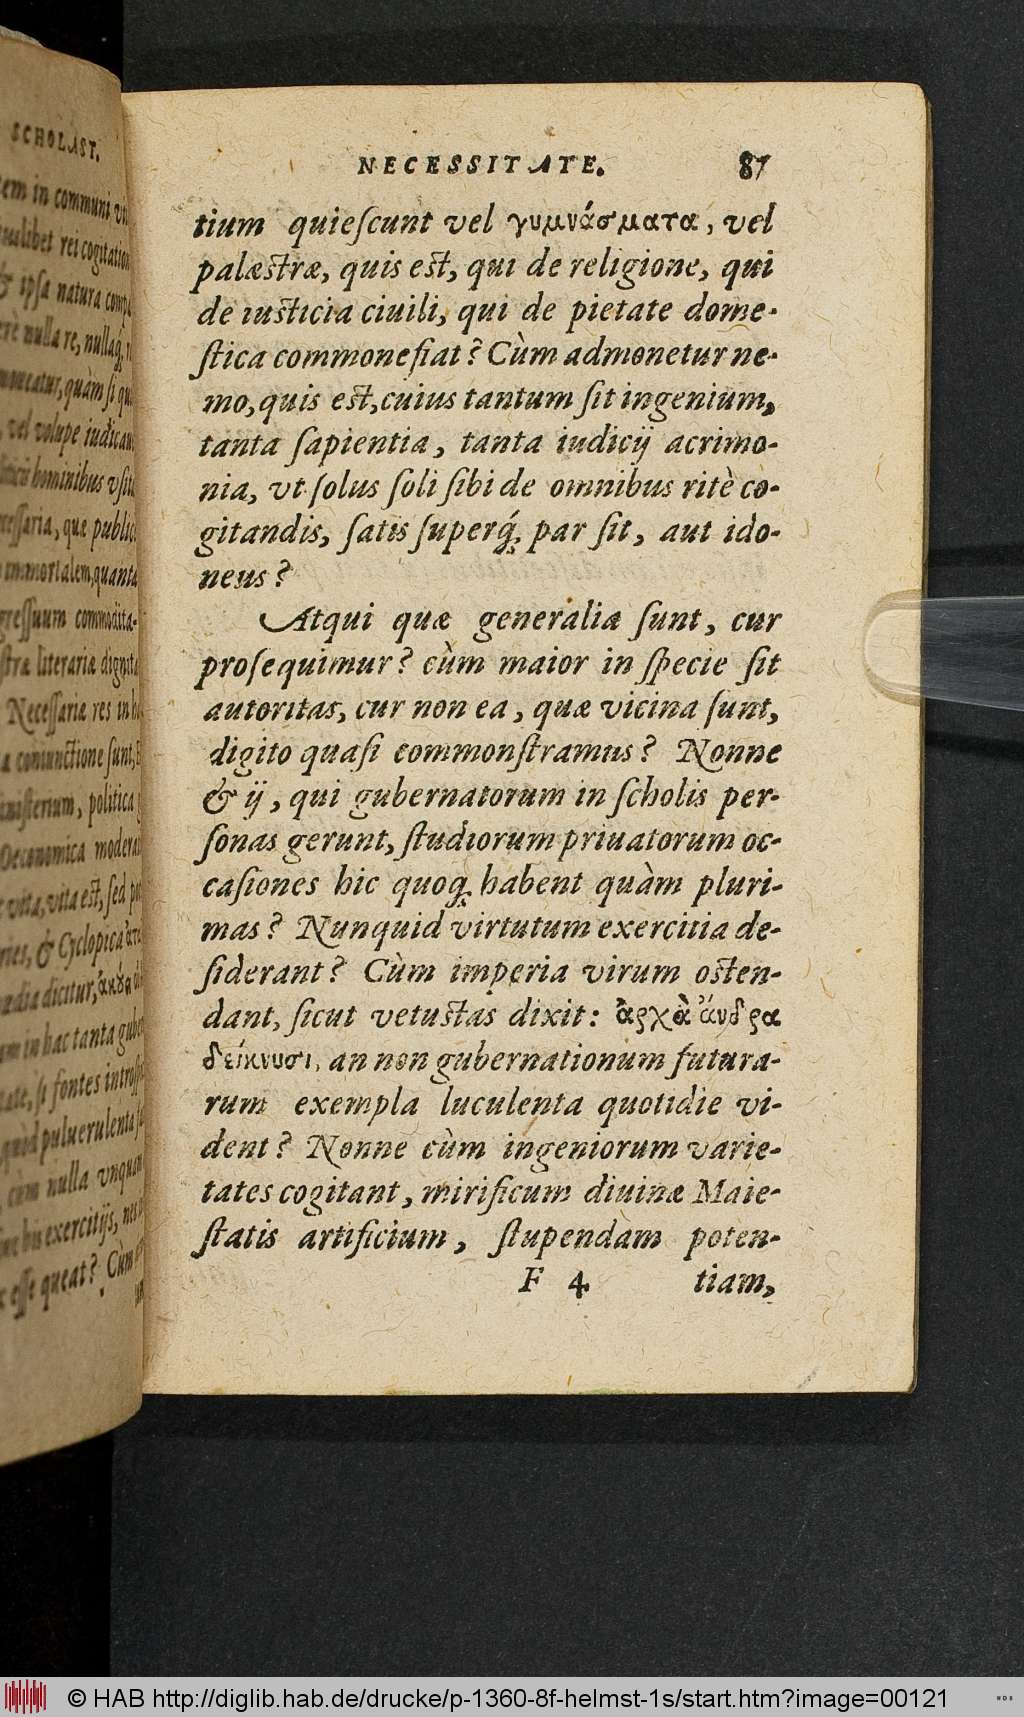 SCHOLAST.
em in communi
rei cogitation
& ipsa natura
nulla re, nullaq́;
quàm si
vel volupe
hominibus
quæ public
immortalem, quanta
gressuum commodita-
literariæ
Necessariæ res in
coniunctione sunt,
politica
Oeconomica
vita est, sed
& Cyclopica
dicitur,
in hac tanta
si fontes
puluerulenta
cùm nulla vnquam
exercitijs,
esse queat? Cùm
NECESSITATE. 87
tium quieſcunt vel γυμνάσματα, vel
palæſtræ, quis eſt, qui de religione, qui
de iuſticia ciuili, qui de pietate dome-
ſtica commonefiat? Cùm admonetur ne-
mo, quis eſt, cuius tantum ſit ingenium,
tanta ſapientia, tanta iudicij acrimo-
nia, vt ſolus ſoli ſibi de omnibus ritè co-
gitandis, ſatis ſuperq́; par ſit, aut ido-
neus?
Atqui quæ generalia ſunt, cur
proſequimur? cùm maior in ſpecie ſit
autoritas, cur non ea, quæ vicina ſunt,
digito quaſi commonſtramus? Nonne
& ij, qui gubernatorum in ſcholis per-
ſonas gerunt, ſtudiorum priuatorum oc-
caſiones hic quoq; habent quàm pluri-
mas? Nunquid virtutum exercitia de-
ſiderant? Cùm imperia virum oſten-
dant, ſicut vetuſtas dixit: ἀρχὰ ἄνδρα
δείκνυσι, an non gubernationum futura-
rum exempla luculenta quotidie vi-
dent? Nonne cùm ingeniorum varie-
tates cogitant, mirificum diuinæ Maie-
ſtatis artificium, ſtupendam poten-
F 4 tiam,
© HAB http://diglib.hab.de/drucke/p-1360-8f-helmst-1s/start.htm?image=00121